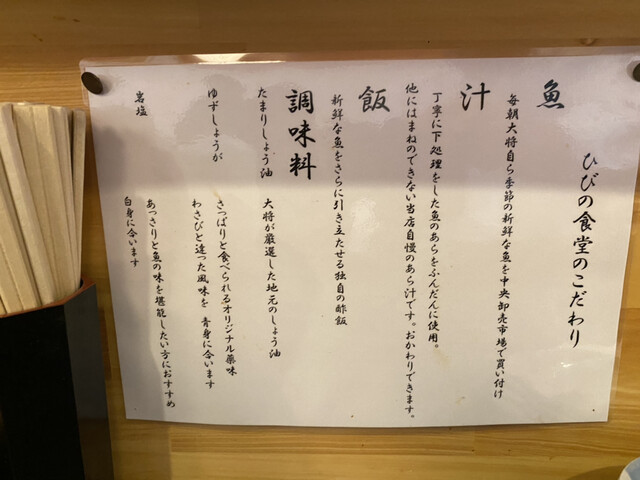 ひびの食堂のこだわり
魚
毎朝大将自ら季節の新鮮な魚を中央卸売市場で買い付け
汁
丁寧に下処理をした魚のあらをふんだんに使用。
他にはまねのできない当店自慢のあら汁です。おかわりできます。
飯
新鮮な魚をさらに引き立たせる独自の酢飯
調味料
たまりしょう油 大将が厳選した地元のしょう油
ゆずしょうが さっぱりと食べられるオリジナル薬味
わさびと違った風味を 青身に合います
岩塩 あっさりと魚の味を堪能したい方におすすめ
白身に合います